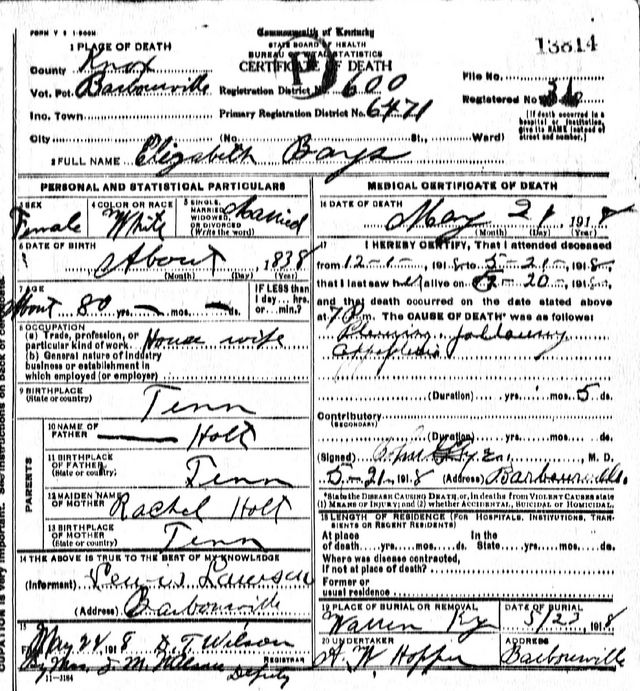 FORM V S 1-500M
Commonwealth of Kentucky
STATE BOARD OF HEALTH
BUREAU OF VITAL STATISTICS
CERTIFICATE OF DEATH
13814
1 PLACE OF DEATH
County Knox
Vot. Pct. Barbourville
Registration District No. 600
File No.
Inc. Town
Primary Registration District No. 6471
Registered No. 31
City (No. St., Ward)
[If death occurred in a hospital or institution, give its NAME instead of street and number.]
2 FULL NAME Elizabeth Bays
PERSONAL AND STATISTICAL PARTICULARS
3 SEX Female
4 COLOR OR RACE White
5 SINGLE, MARRIED, WIDOWED, OR DIVORCED (Write the word) Married
6 DATE OF BIRTH
About 1838
(Month) (Day) (Year)
7 AGE
About 80 yrs. mos. ds.
IF LESS than 1 day... hrs. or...min.?
8 OCCUPATION
(a) Trade, profession, or particular kind of work House wife
(b) General nature of industry
business or establishment in
which employed (or employer)
9 BIRTHPLACE
(State or country) Tenn
PARENTS
10 NAME OF FATHER Holt
11 BIRTHPLACE OF FATHER (State or country) Tenn
12 MAIDEN NAME OF MOTHER Rachel Holt
13 BIRTHPLACE OF MOTHER (State or country) Tenn
14 THE ABOVE IS TRUE TO THE BEST OF MY KNOWLEDGE
(Informant)
(Address) Barbourville
15
Filed May 24, 1918 D. T. Wilson
REGISTRAR
By Mrs. J. M. Wilson Deputy
11-3184
MEDICAL CERTIFICATE OF DEATH
16 DATE OF DEATH
May 21, 1918
(Month) (Day) (Year)
17 I HEREBY CERTIFY, That I attended deceased
from 12-1-, 1918 to 5-21-, 1918,
that I last saw her alive on 5-20-, 1918,
and that death occurred on the date stated above
at 7 P.m. The CAUSE OF DEATH* was as follows:
(Duration) yrs. mos. 5 ds.
Contributory
(SECONDARY)
(Duration) yrs. mos. ds.
(Signed) M. D.
5-21-1918 (Address) Barbourville.
*State the DISEASE CAUSING DEATH, or, in deaths from VIOLENT CAUSES state
(1) MEANS OF INJURY; and (2) whether ACCIDENTAL, SUICIDAL or HOMICIDAL.
18 LENGTH OF RESIDENCE (FOR HOSPITALS, INSTITUTIONS, TRANSIENTS OR RECENT RESIDENTS)
At place In the
of death yrs. mos. ds. State yrs. mos. ds.
Where was disease contracted,
if not at place of death?
Former or
usual residence
19 PLACE OF BURIAL OR REMOVAL
Warren Ky
DATE OF BURIAL
5/23, 1918
20 UNDERTAKER
A. W. Hopper
ADDRESS
Barbourville